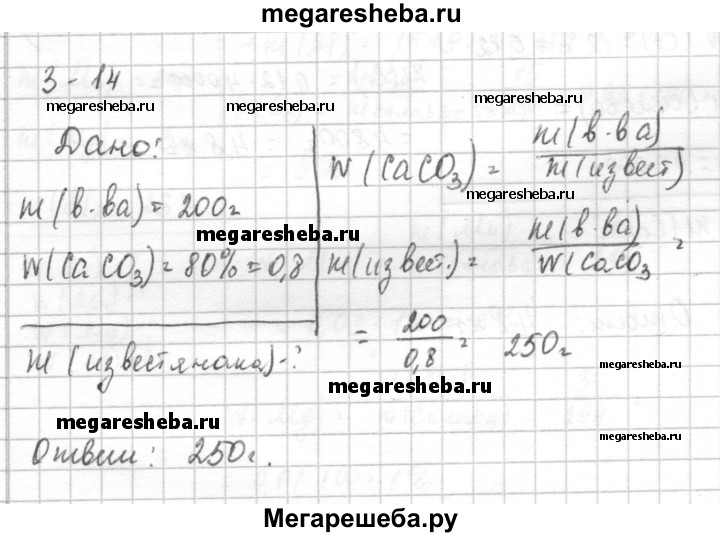 megaresheba.ru
3-14
megaresheba.ru megaresheba.ru megaresheba.ru
Дано:
W(CaCO3) = m(в-ва) / m(извест)
m(в-ва) = 200г
megaresheba.ru
megaresheba.ru
W(CaCO3) = 80% = 0,8
m(извест.) = m(в-ва) / W(CaCO3 =
= 200 / 0,8 = 250г
m(известняка)-?
megaresheba.ru
megaresheba.ru
megaresheba.ru
megaresheba.ru
Ответ: 250г.
Мегарешеба.ру